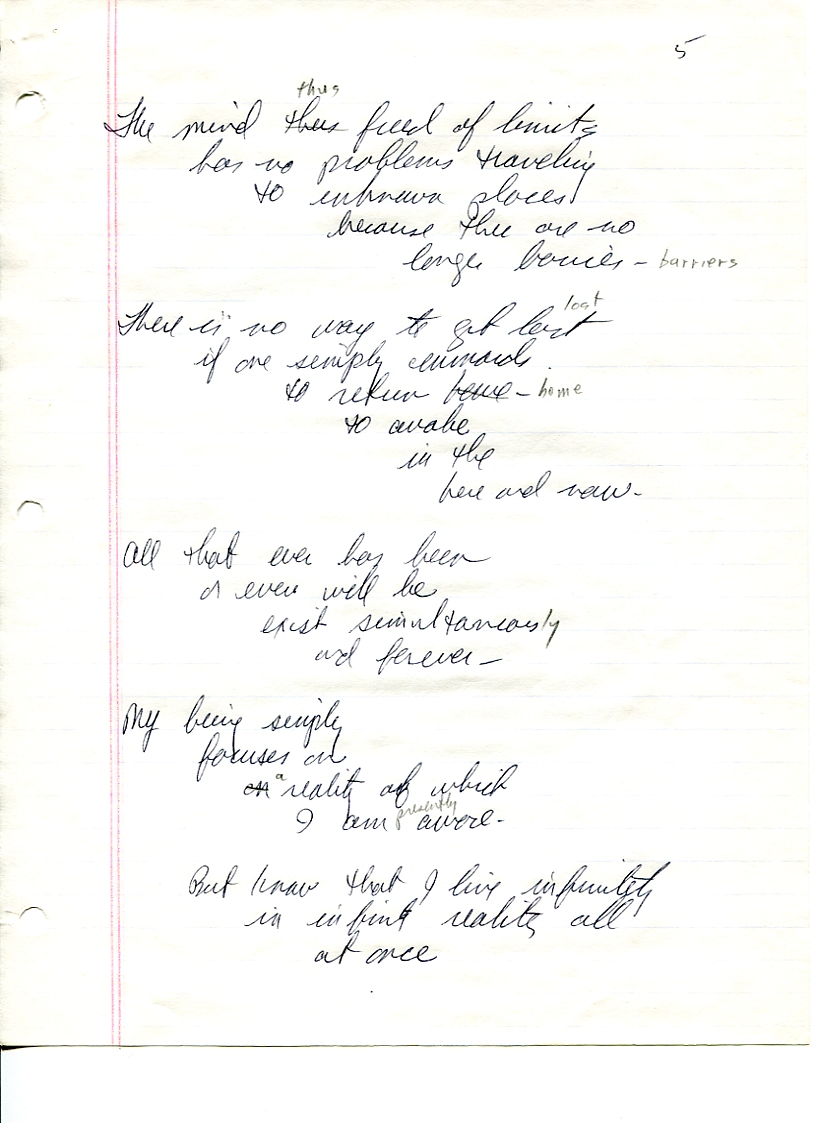 5
thus
The mind thus freed of limits
has no problems traveling
to unknown places
because there are no
longer barriers – barriers
lost
There is no way to get lost
if one simply commands
to return home – home
to awake
in the
here and now.
All that ever has been
or ever will be
exist simultaneously
and forever –
My being simply
focuses on
a
reality of which
presently
I am aware.
But know that I live infinitely
in infinit reality all
at once